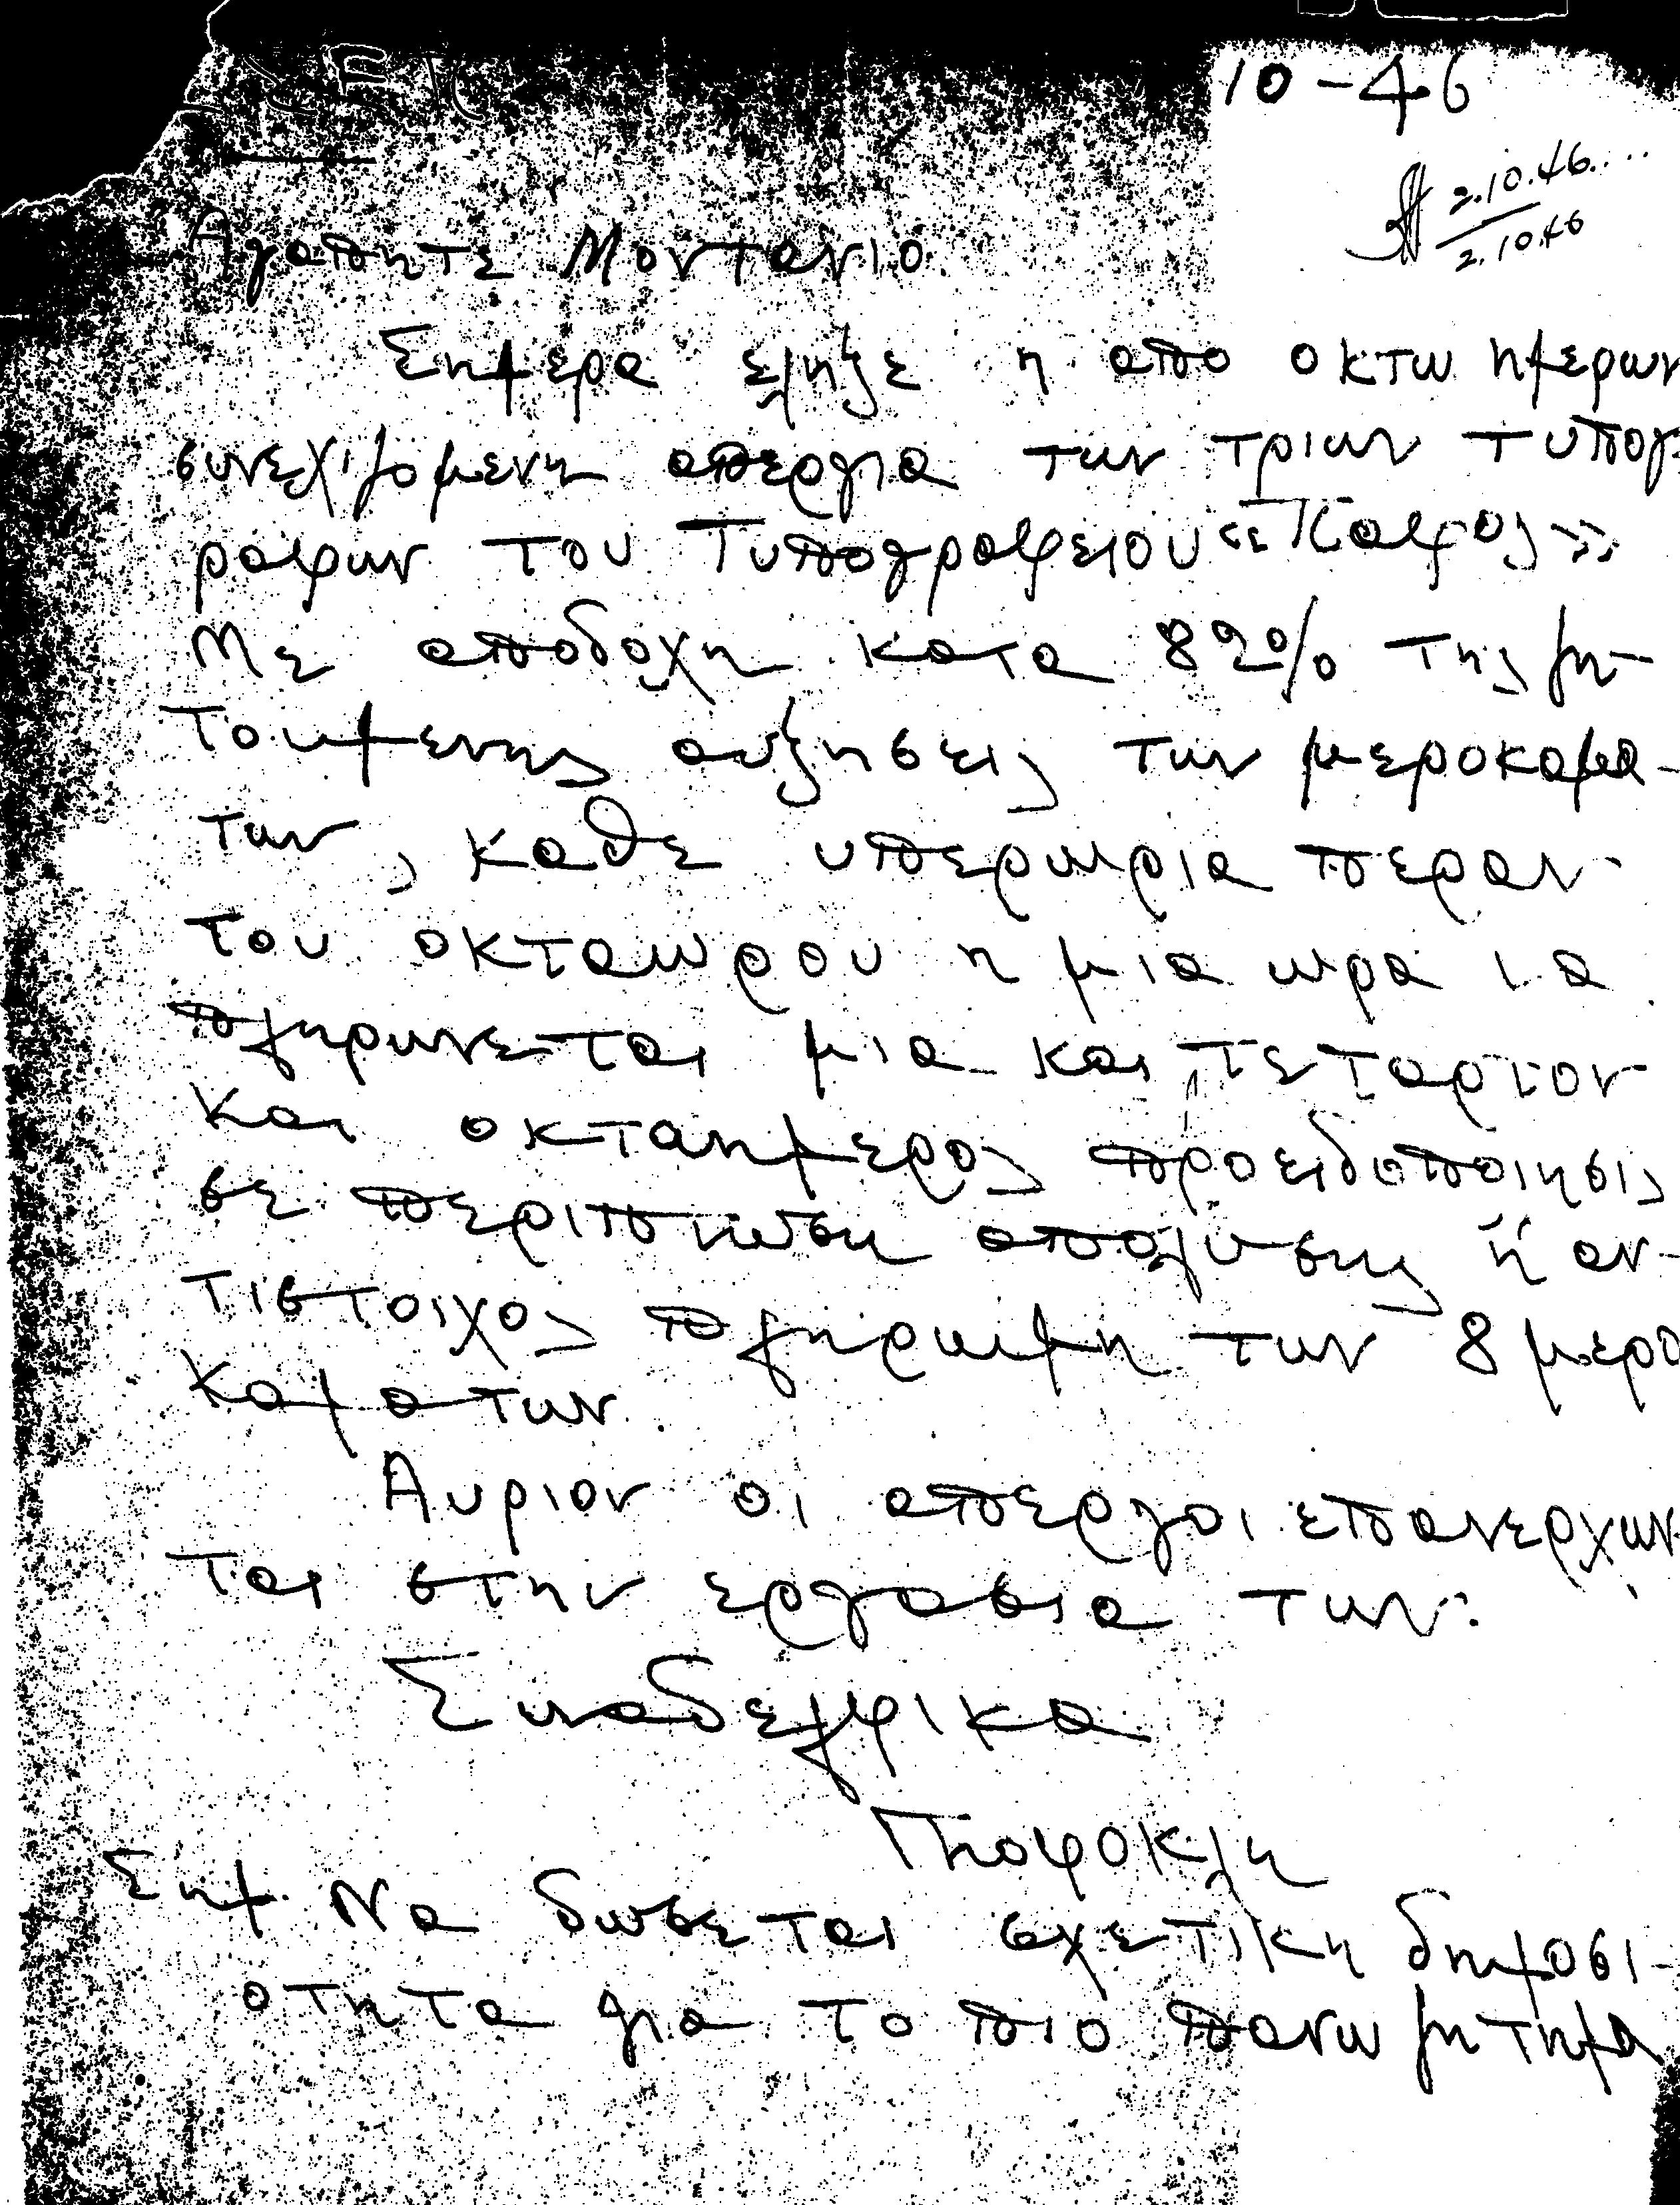 10-46
2.10.46....
2.10.46
Αγαπητε Μοντανιο.
Σημερα εληξε η απο οκτω ημερων
συνεχιζομενη απεργια των τριων τυπογ-
ραφων του Τυπογραφειου «Παφος».
Με αποδοχη κατα 82% της ζη-
τουμενης αυξησεις των μεροκαμα-
των, καθε υπερωρια περαν
του οκταωρου η μια ωρα να
πληρωνεται μια και τεταρτον
και οκταημερος προειδοποιησις
σε περιπτωση απολυσης ή αν-
τιστοιχος πληρωμη των 8 μερο
καματων.
Αυριον οι απεργοι επανερχων-
ται στην εργασια των.
Συναδελφικα
Σημ. Να δωσεται σχετικη δημοσι-
οτητα για το πιο πανω ζητημα